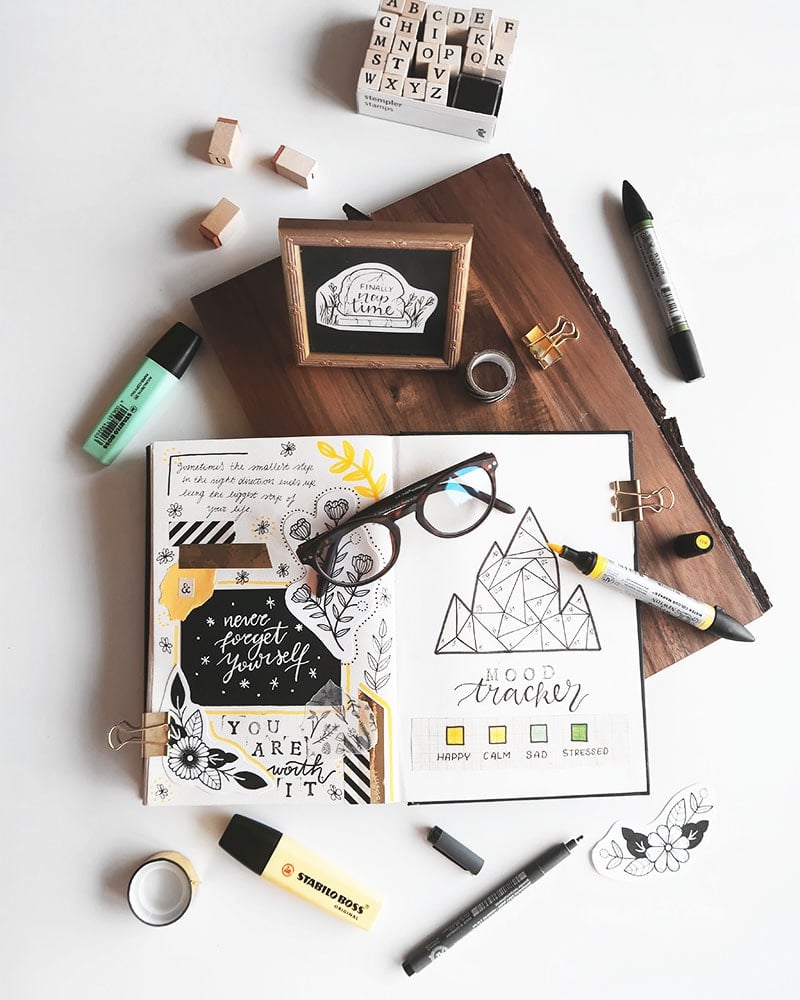 A B C D E F
G H N I O P K R
M S T L
W X Y Z
stempler
stamps
FINALLY
nap
time
STABILO BOSS
Sometimes the smallest step
in the right direction ends up
being the biggest step of
your life.
&
never
forget
yourself
YOU
ARE
worth
IT
MOOD
tracker
HAPPY CALM SAD STRESSED
STABILO BOSS
ORIGINAL